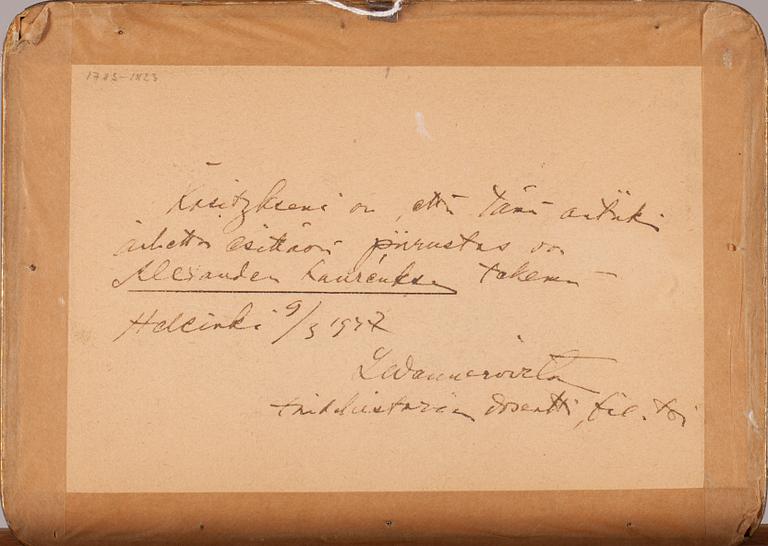 1783-1823
Käsitykseni on, että tämä antiikki-
aihetta esittävä piirustus on
Alexander Lauréuksen tekemä
Helsinki 9/3 1947
L Wennervirta
taidehistorian dosentti, fil. tri